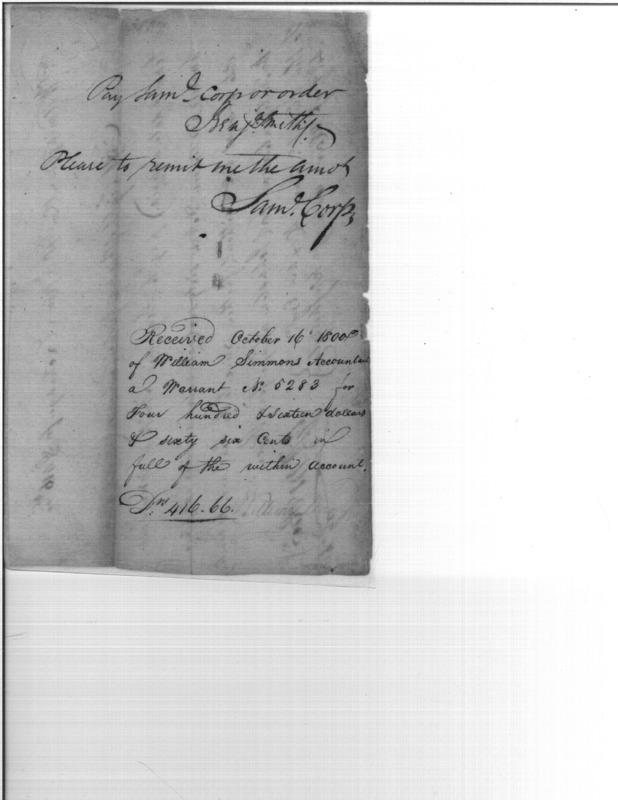 Pay Sam.l Corp or order
Benj Smith
Please to remit me the amot
Sam.l Corp,
Received October 16 1800
of William Simmons Accountant
a Warrant No. 5283 for
Four hundred & Sixteen dollars
& sixty six Cents in
full of the within account.
416.66.